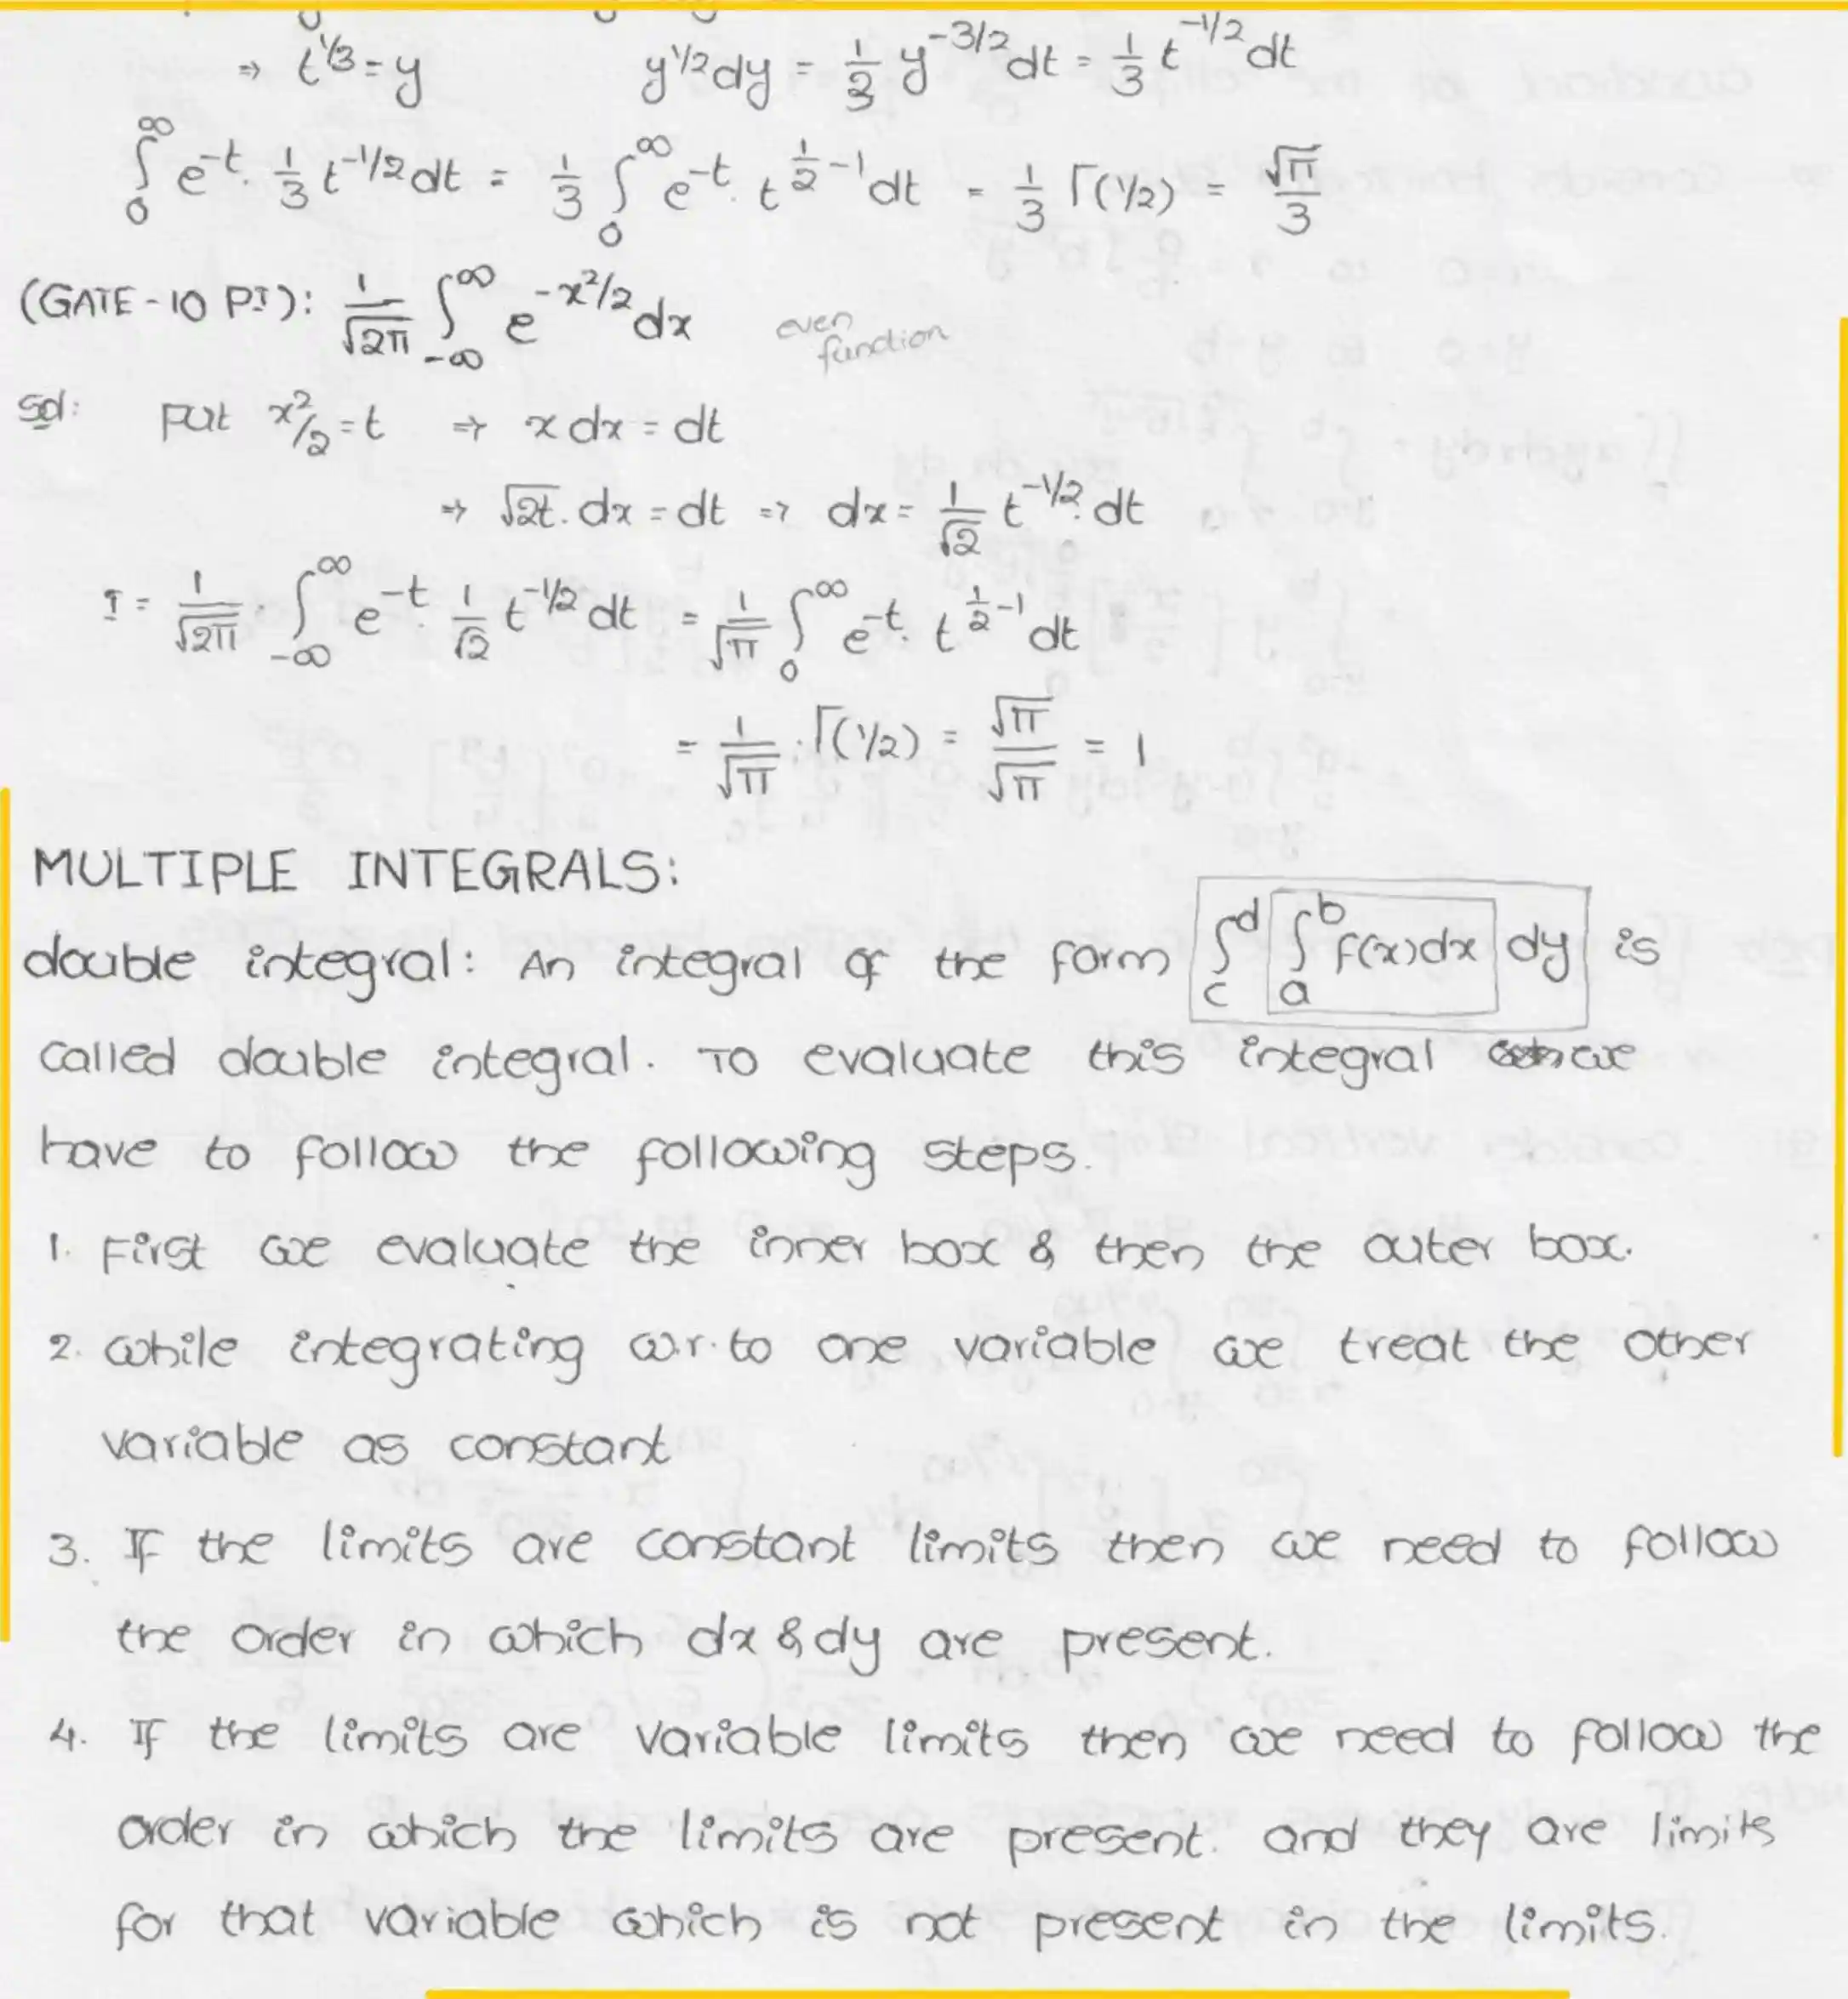 ⇒ t^1/3 = y y^1/2 dy = 1/3 y^-3/2 dt = 1/3 t^-1/2 dt
∫_0^∞ e^-t . 1/3 t^-1/2 dt = 1/3 ∫_0^∞ e^-t . t^(1/2 - 1) dt = 1/3 Γ(1/2) = √π/3
(GATE - 10 PI): 1/√2π ∫_-∞^∞ e^-x²/2 dx even function
Sol: Put x²/2 = t ⇒ x dx = dt
⇒ √2t . dx = dt ⇒ dx = 1/√2 t^-1/2 . dt
I = 1/√2π . ∫_-∞^∞ e^-t . 1/√2 t^-1/2 dt = 1/√π ∫_0^∞ e^-t . t^(1/2 - 1) dt
= 1/√π . Γ(1/2) = √π/√π = 1
MULTIPLE INTEGRALS:
double integral: An integral of the form ∫_c^d ∫_a^b f(x)dx dy is
called double integral. To evaluate this integral we
have to follow the following steps.
1. First we evaluate the inner box & then the outer box.
2. while integrating w.r.to one variable we treat the other
variable as constant
3. If the limits are constant limits then we need to follow
the order in which dx & dy are present.
4. If the limits are variable limits then we need to follow the
order in which the limits are present. and they are limits
for that variable which is not present in the limits.